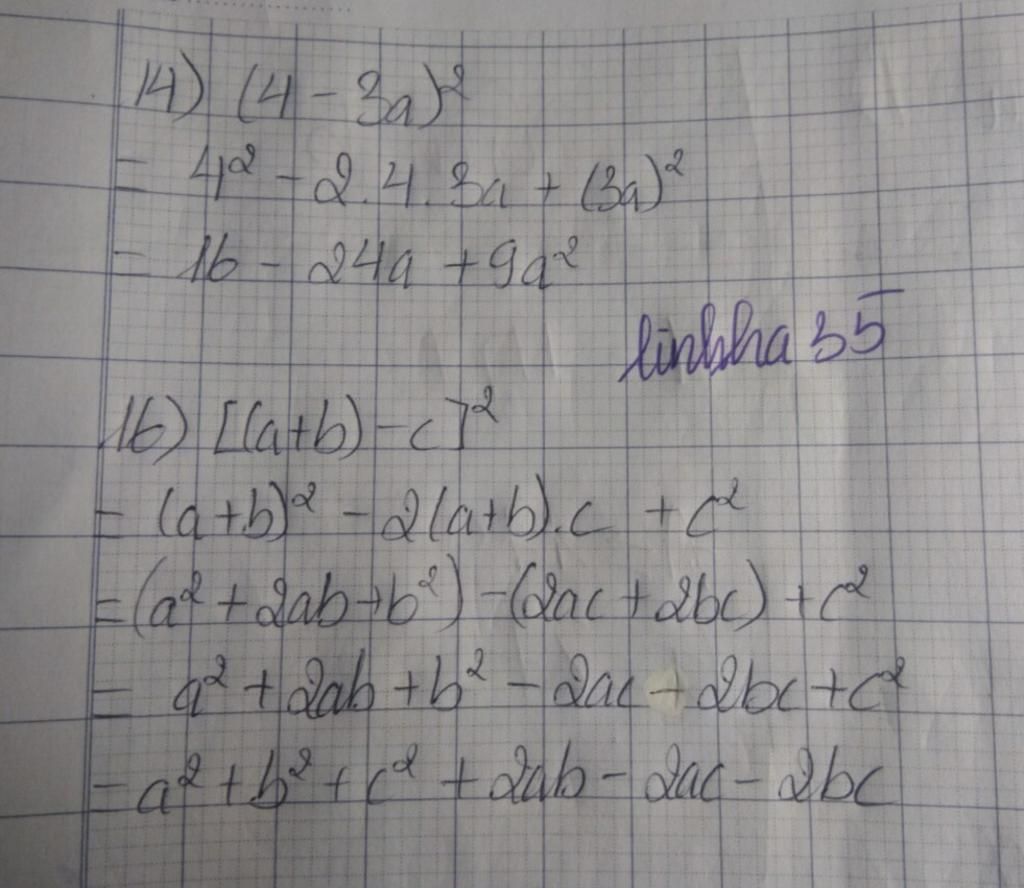 14) (4 - 3a)²
= 4² - 2.4.3a + (3a)²
= 16 - 24a + 9a²
linhha35
16) [(a+b) - c]²
= (a+b)² - 2(a+b).c + c²
= (a² + 2ab + b²) - (2ac + 2bc) + c²
= a² + 2ab + b² - 2ac - 2bc + c²
= a² + b² + c² + 2ab - 2ac - 2bc